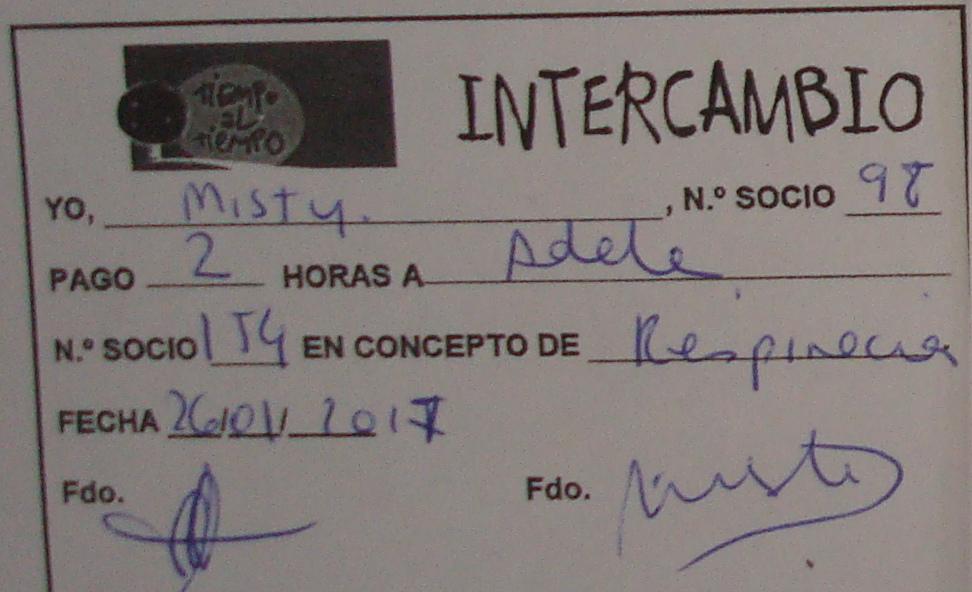 TIEMPO
AL
TIEMPO
INTERCAMBIO
YO, Misty. , N.º SOCIO 98
PAGO 2 HORAS A Adele
N.º SOCIO 154 EN CONCEPTO DE Respiración
FECHA 26/01/ 2017
Fdo. Fdo. Misty